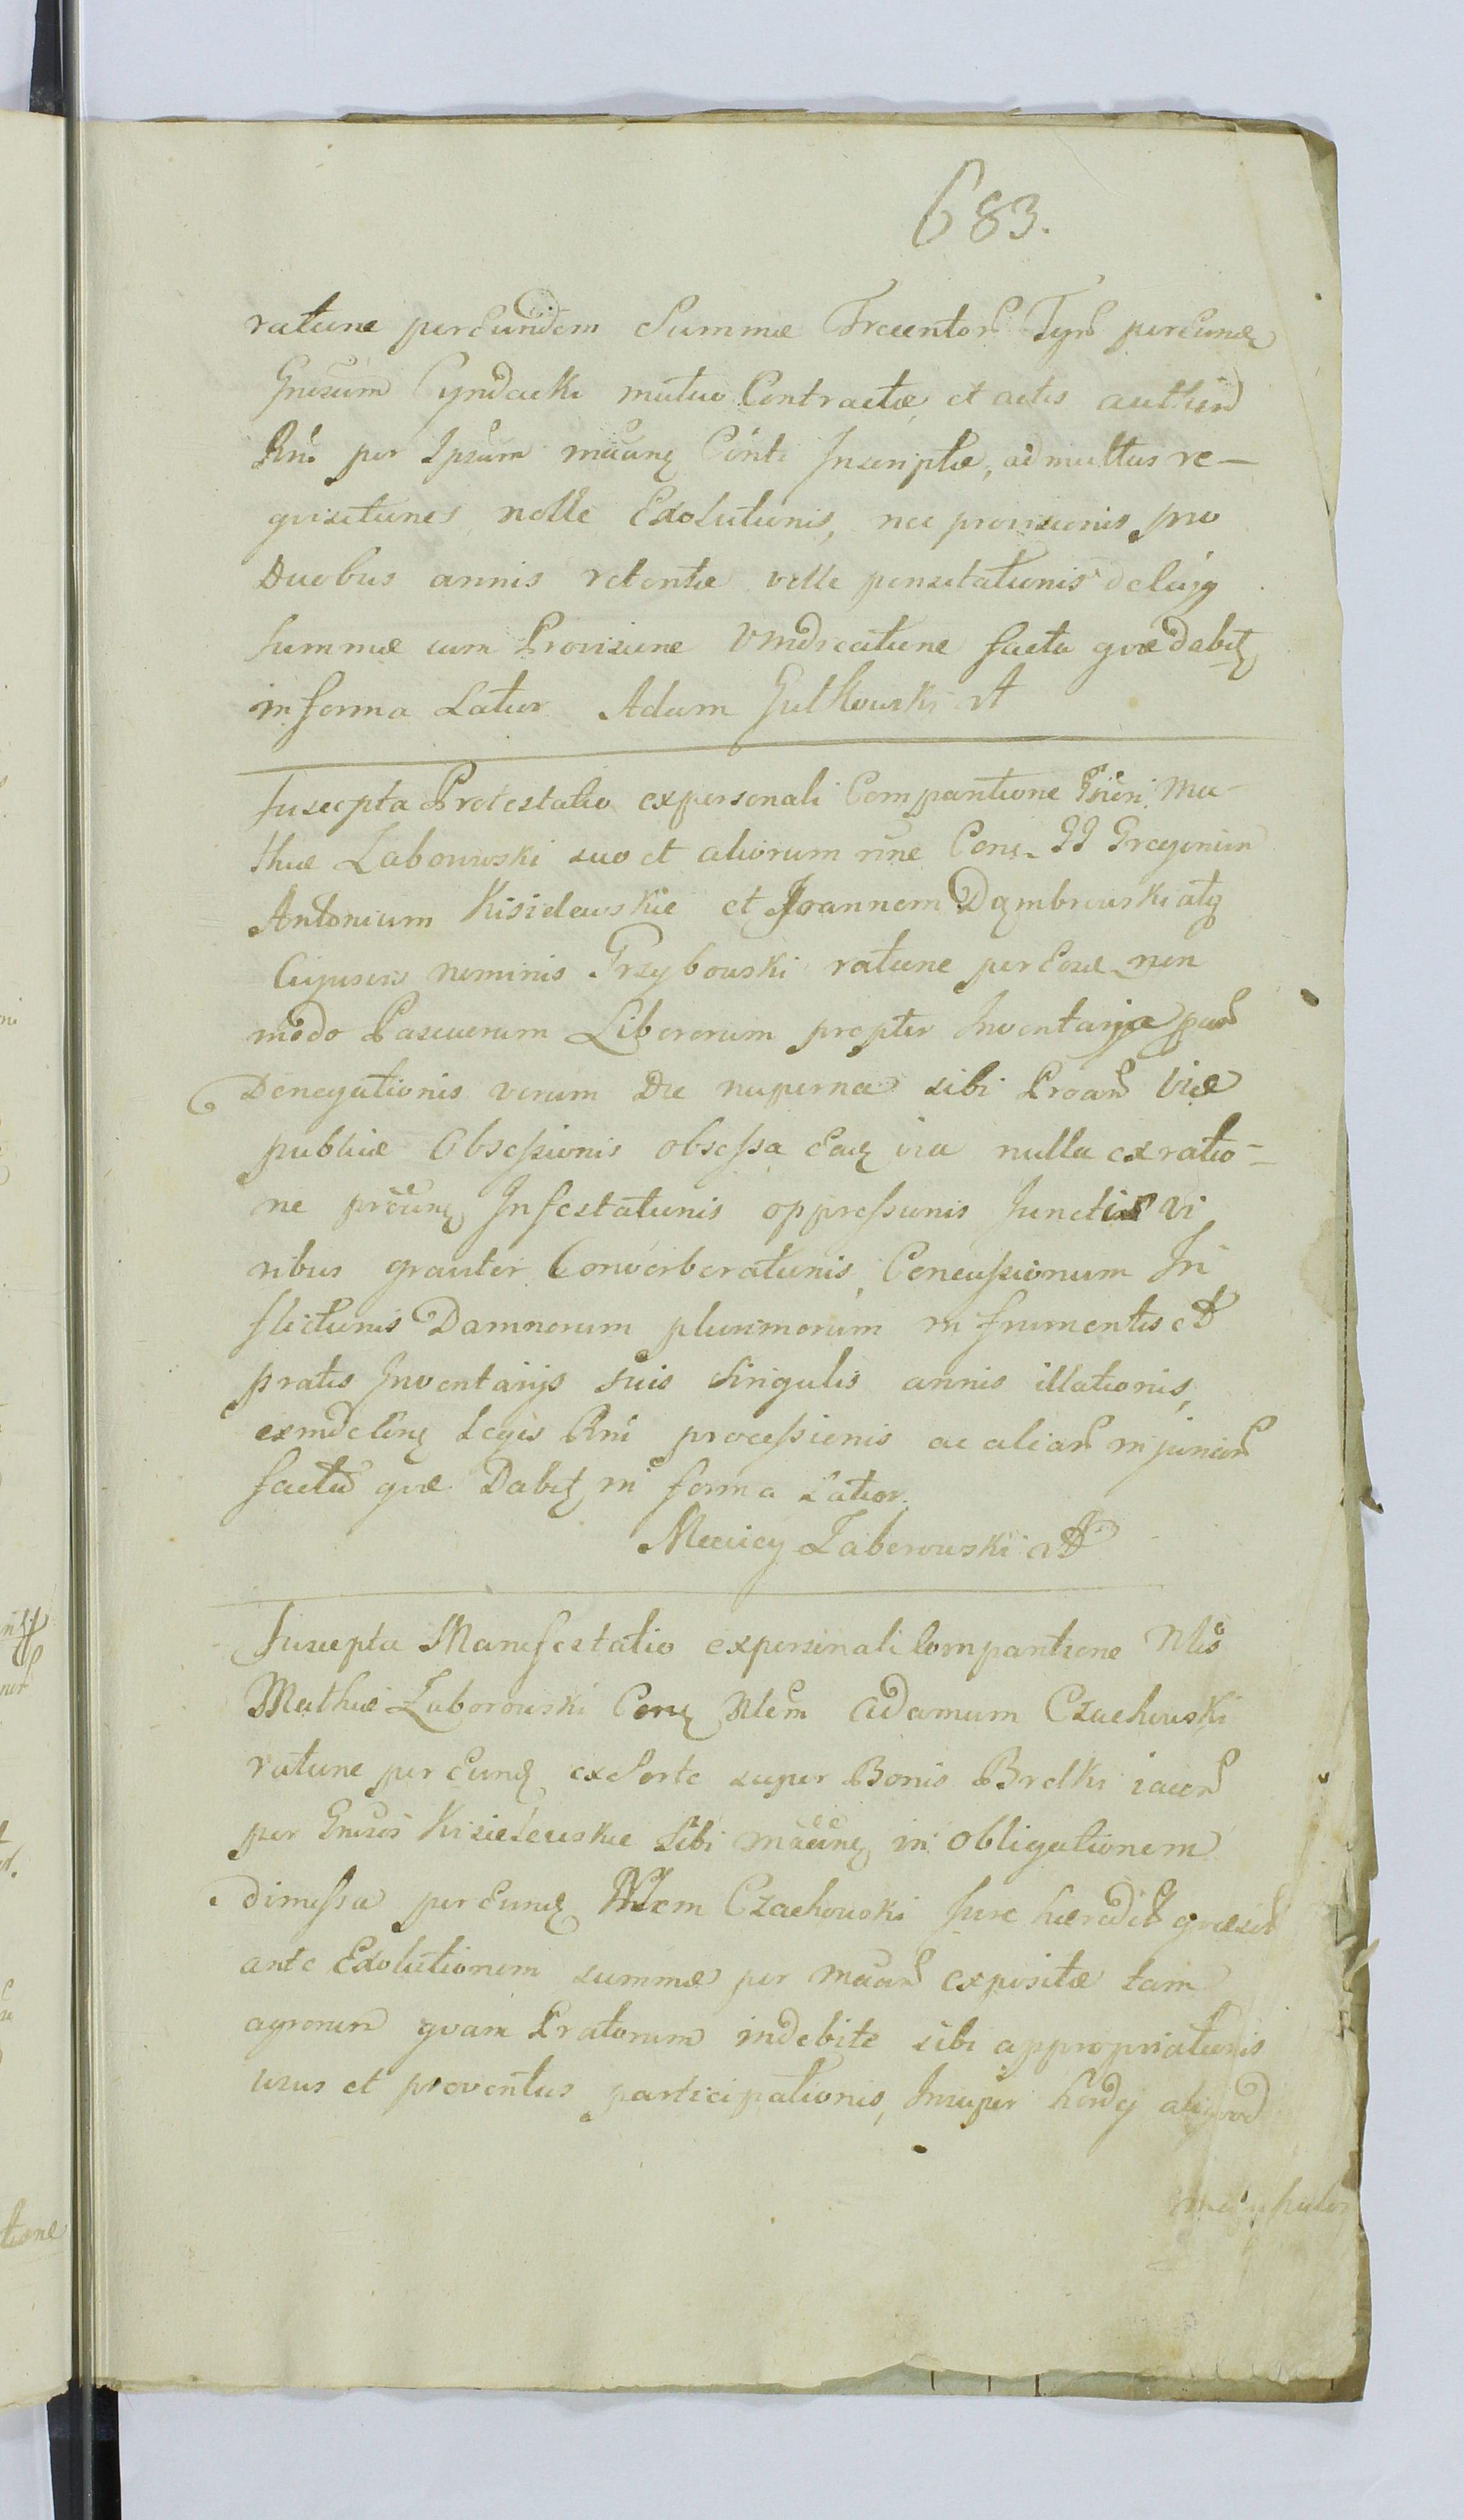 683.
ratione per Eundem Summæ Trecentor Tyn per Eunde
Gnosum Cyndacki mutuo Contractæ, et actis authen
Rni per Ipsum mãanę Cõnti Inscriptæ, ad multas re-
quisitiones nolle Exolutionis, nec provisionis pro
Duobus annis retentæ velle pensitationis
summæ cum Provisione Vindicatione facta quæ dabitz
in forma Latior Adam Gutkowski
Suscepta Protestatio ex personali Comparitione Gnẽri Ma-
thiæ Zaborowski suo et aliorum nne Conz GG Gregorium
Antonium Kisielewskie et Joannem Dąmbrowski atq
Cujusvis nominis Przybowski ratione per Eosd non
modo Pascuorum Liberorum propter Inventarja
Denegationis verum Die nuperna sibi Proan Viæ
publicæ Obsessionis obsessa Eadz via nulla ex ratio-
ne prẽunę Infestationis oppressionis Junctis vi
ribus graviter Converberationis, Concussionum In
flictionis Damnorum plurimorum in frumentis et
pratis Inventarijs suis Singulis annis illationis,
Legis Rni processionis ac aliar injuriar
facta quæ Dabitz in forma Latior.
Maciey Zaborowski
Suscepta Manifestatio ex personali Comparitione Nlis
Mathiæ Zaborowski Conz Nlem Adamum Czachowski
ratione per Eund ex Sorte super Bonis Brelki iacen
per Gnosos Kisielewskie Sibi mãanę in obligationem
dimissa per Eund Nlem Czachowski Jure hæredit quæsit
ante Exolutionem summæ per mãan expositæ tam
agrorum quam Pratorum indebite sibi appropriationis
usus et proventus participationis, Insuper hordej aliquod